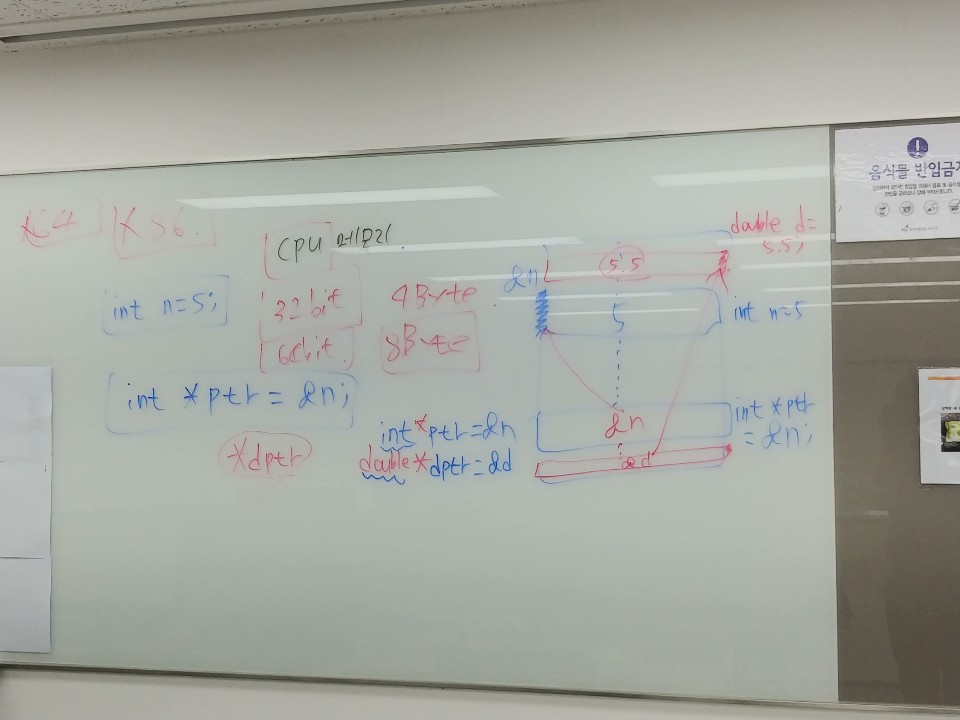 X64 X86.
CPU 메모리.
int n=5;
32bit 4Byte
64bit. 8Byte
int *ptr = &n;
*dptr
int *ptr = &n
double *dptr = &d
double d=
5.5;
5.5
&n
5
int n=5
&n
int *ptr
= &n;
&d
음식물 반입금지